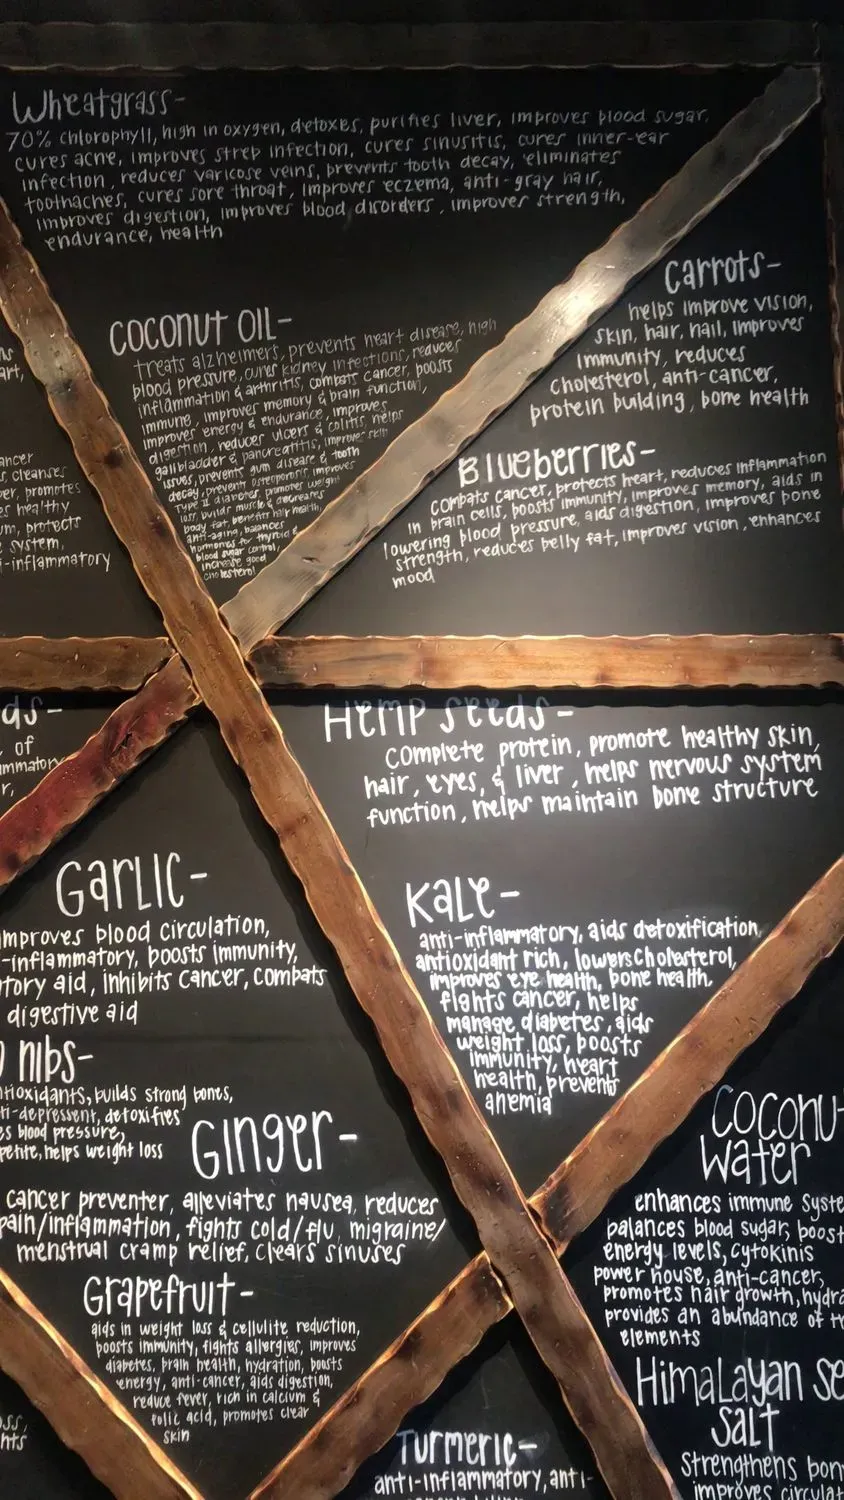 Wheatgrass-
70% chlorophyll, high in oxygen, detoxes, purifies liver, improves blood sugar,
cures acne, improves strep infection, cures sinusitis, cures inner-ear
infection, reduces varicose veins, prevents tooth decay, eliminates
toothaches, cures sore throat, improves eczema, anti-gray hair,
improves digestion, improves blood disorders, improves strength,
endurance, health
Coconut Oil-
treats alzheimers, prevents heart disease, high
blood pressure, cures kidney infections, reduces
inflammation & arthritis, combats cancer, boosts
immune, improves memory & brain function,
improves energy & endurance, improves
digestion, reduces ulcers & colitis, helps
gallbladder & pancreatitis, improves skin
issues, prevents gum disease & tooth
decay, prevents osteoporosis, improves
Type II diabetes, promotes weight
loss, builds muscle & decreases
body fat, benefits hair health,
anti-aging, balances
hormones for thyroid &
blood sugar control,
increase good
cholesterol
Carrots-
helps improve vision,
skin, hair, nail, improves
immunity, reduces
cholesterol, anti-cancer,
protein building, bone health
Blueberries-
combats cancer, protects heart, reduces inflammation
in brain cells, boosts immunity, improves memory, aids in
lowering blood pressure, aids digestion, improves bone
strength, reduces belly fat, improves vision, enhances
mood
ancer
cleanses
ver, promotes
es healthy
um, protects
system,
-inflammatory
ds-
, of
mmatory
r,
Hemp Seeds-
complete protein, promote healthy skin,
hair, eyes, & liver, helps nervous system
function, helps maintain bone structure
Garlic-
improves blood circulation,
-inflammatory, boosts immunity,
tory aid, inhibits cancer, combats
digestive aid
Kale-
anti-inflammatory, aids detoxification,
antioxidant rich, lowers cholesterol,
improves eye health, bone health,
fights cancer, helps
manage diabetes, aids
weight loss, boosts
immunity, heart
health, prevents
anemia
nibs-
ntioxidants, builds strong bones,
ti-depressent, detoxifies
es blood pressure,
petite, helps weight loss
Ginger-
cancer preventer, alleviates nausea, reduces
pain/inflammation, fights cold/flu, migraine/
menstrual cramp relief, clears sinuses
Grapefruit-
aids in weight loss & cellulite reduction,
boosts immunity, fights allergies, improves
diabetes, brain health, hydration, boosts
energy, anti-cancer, aids digestion,
reduce fever, rich in calcium &
folic acid, promotes clear
skin
Coconu
water
enhances immune syste
balances blood sugar, boost
energy levels, cytokinis
power house, anti-cancer,
promotes hair growth, hydra
provides an abundance of
elements
Himalayan se
salt
strengthens bon
improves circulat
Turmeric-
anti-inflammatory, anti-